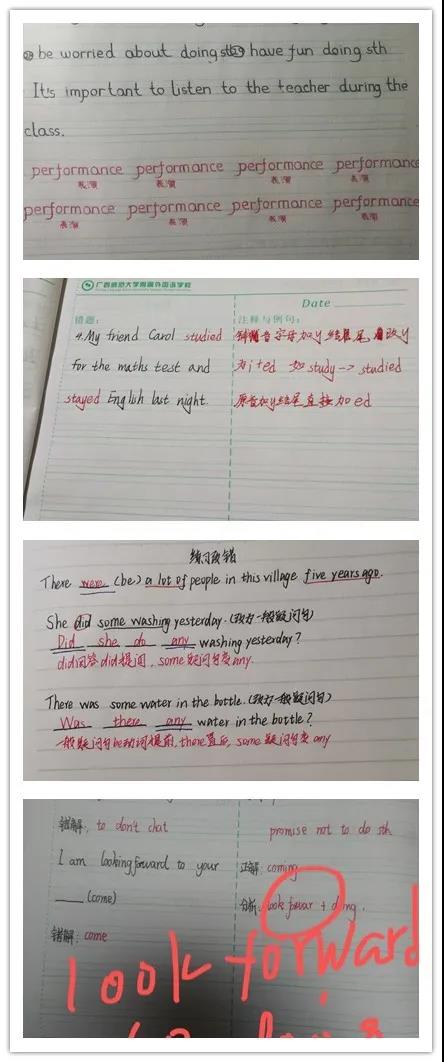 ㉘ be worried about doing sth ㉙ have fun doing sth
It's important to listen to the teacher during the
class.
performance performance performance performance
表演 表演 表演 表演
performance performance performance performance
表演 表演 表演 表演
广西师范大学附属外国语学校
Date
错题: 注释与例句:
4. My friend Carol studied 辅音字母加y结尾, 改y
for the maths test and 为i+ed 如 study -> studied
stayed English last night. 原音加y结尾直接加ed
练习改错
There were (be) a lot of people in this village five years ago.
She did some washing yesterday. (改为一般疑问句)
Did she do any washing yesterday?
did回答did提问, some疑问句变any.
There was some water in the bottle. (改为一般疑问句)
Was there any water in the bottle?
一般疑问句be动词提前, there置后, some疑问句变any
错解: to don't chat promise not to do sth
I am looking forward to your 正解: coming
(come) 分析: look forwar + doing.
错解: come
look forward